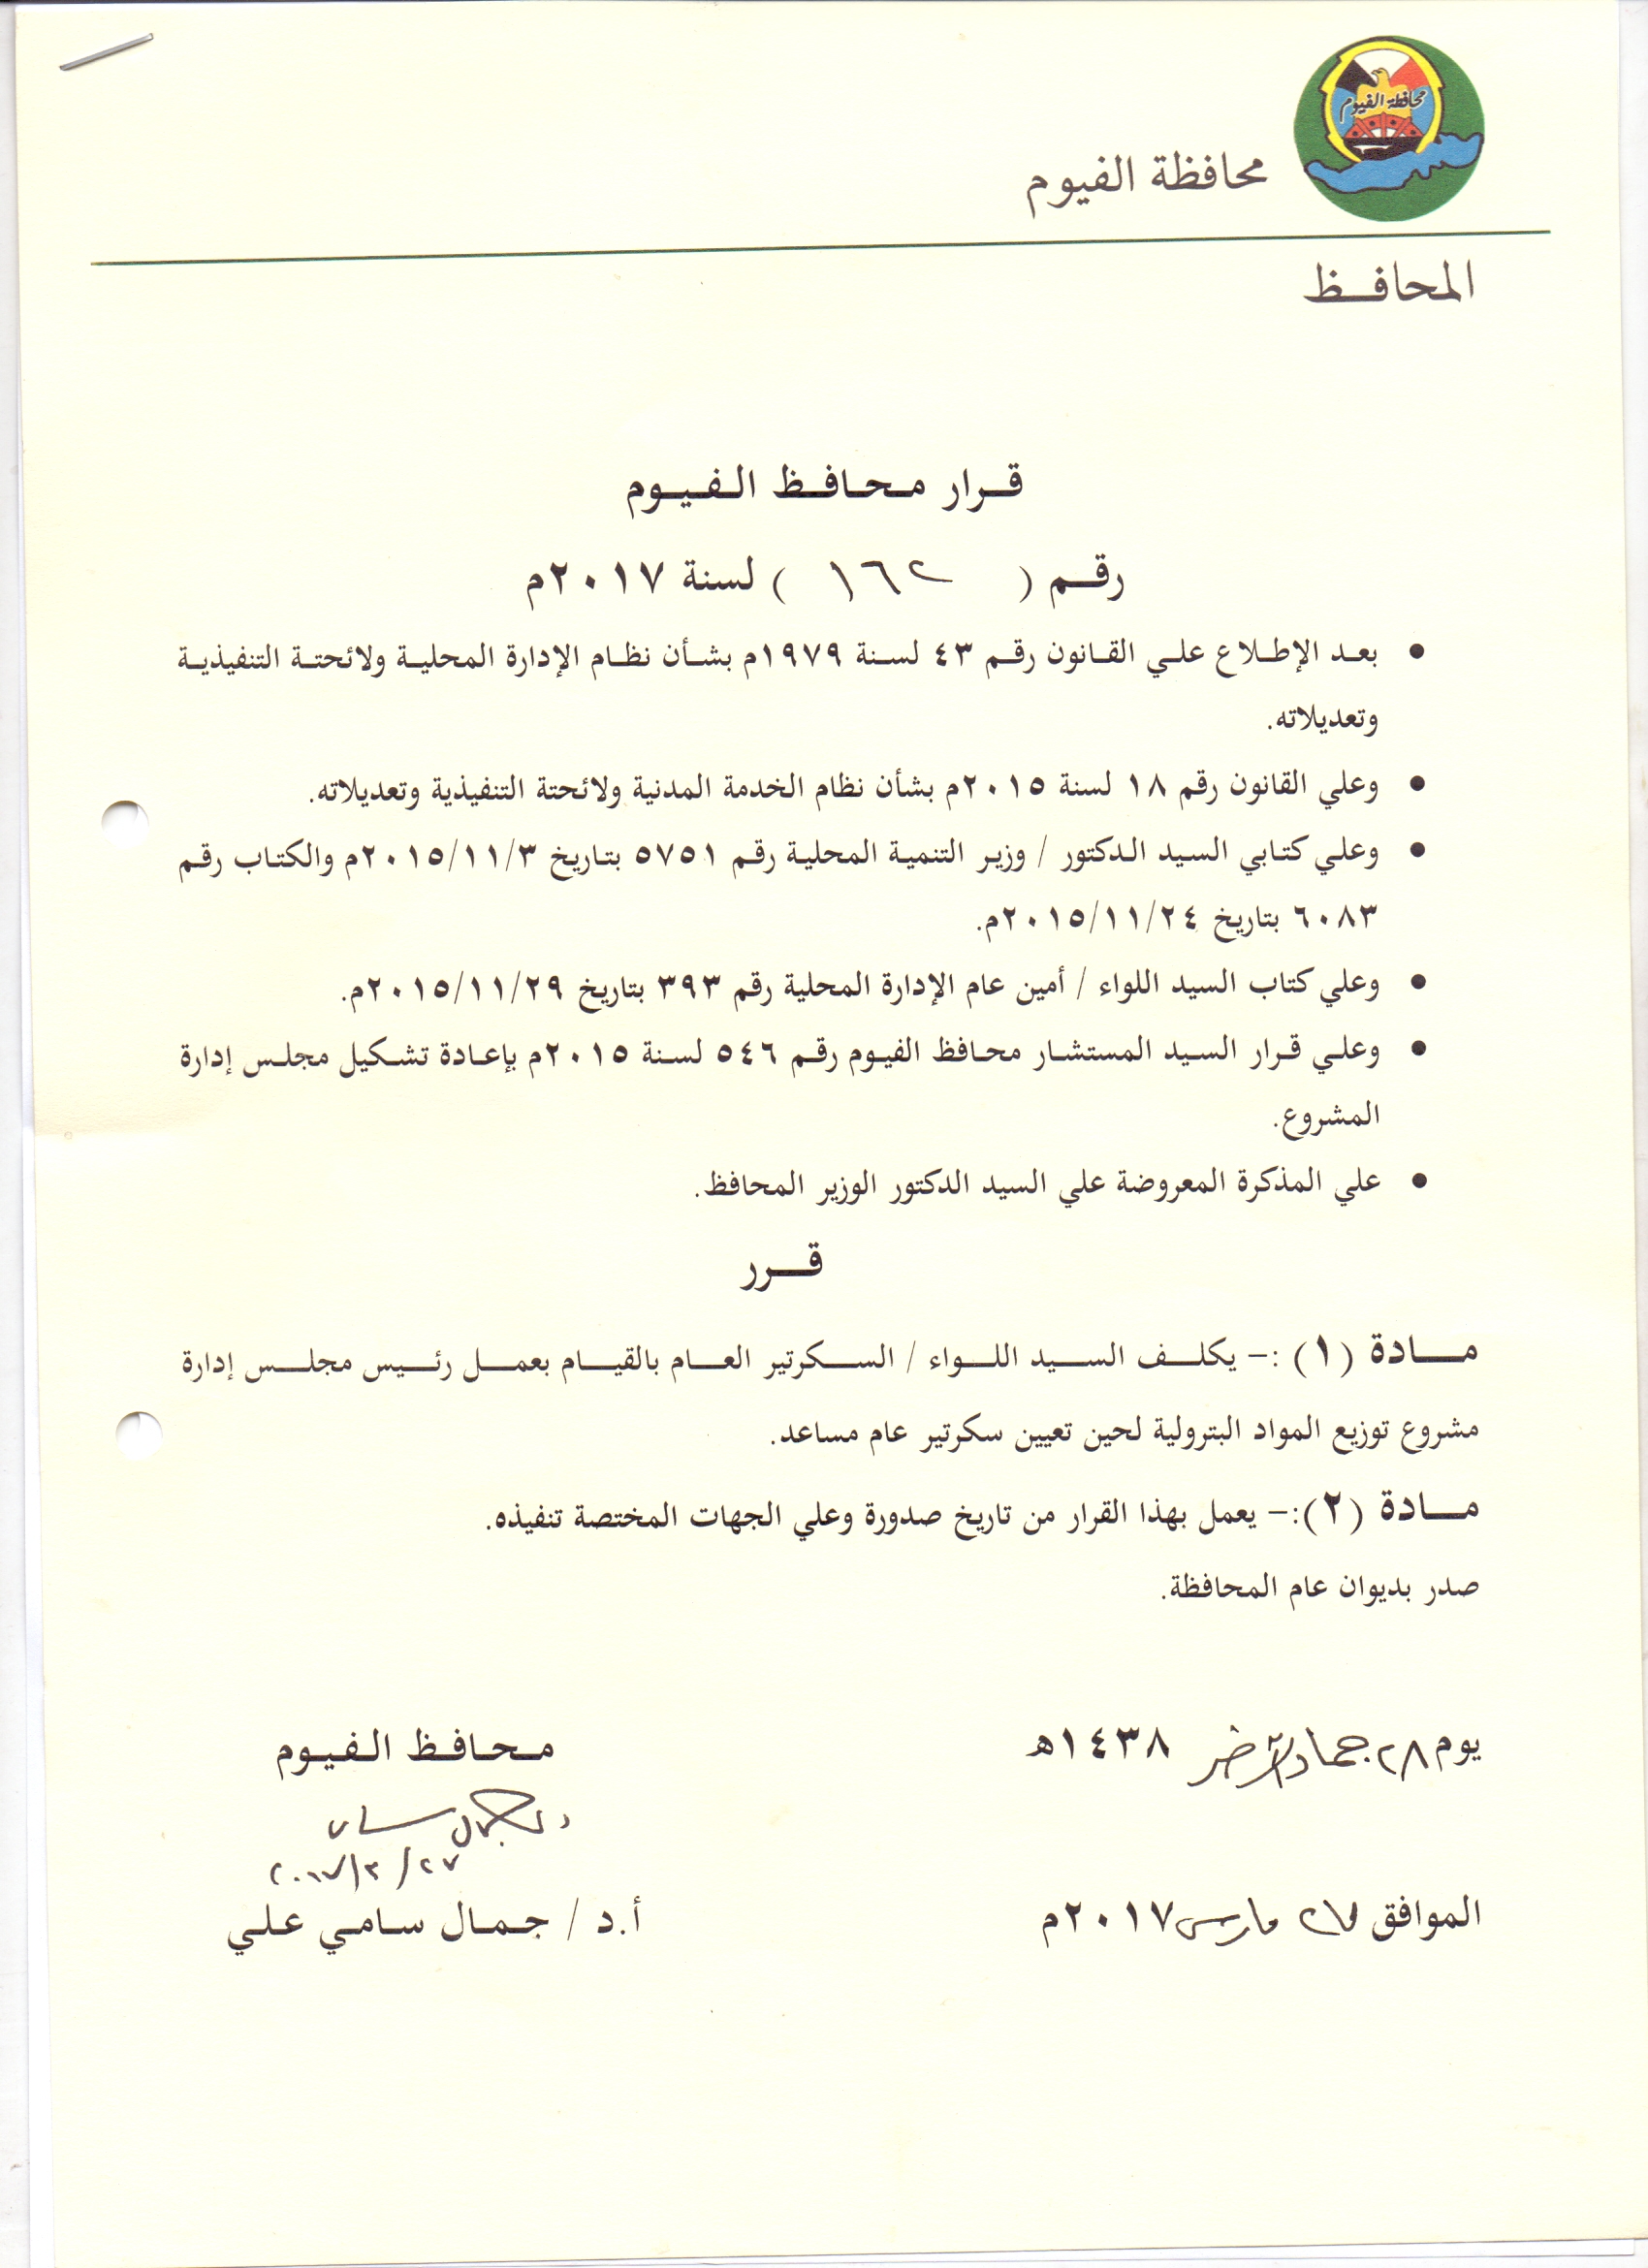 محافظة الفيوم
محافظة الفيوم
المحافـظ
قـرار محـافـظ الـفـيـوم
رقـم ( ١٦٢ ) لسنة ٢٠١٧م
• بعد الإطلاع علي القانون رقم ٤٣ لسنة ١٩٧٩م بشأن نظام الإدارة المحلية ولائحتة التنفيذية
وتعديلاته.
• وعلي القانون رقم ١٨ لسنة ٢٠١٥م بشأن نظام الخدمة المدنية ولائحتة التنفيذية وتعديلاته.
• وعلي كتابي السيد الدكتور / وزير التنمية المحلية رقم ٥٧٥١ بتاريخ ٢٠١٥/١١/٣م والكتاب رقم
٦٠٨٣ بتاريخ ٢٠١٥/١١/٢٤م.
• وعلي كتاب السيد اللواء / أمين عام الإدارة المحلية رقم ٣٩٣ بتاريخ ٢٠١٥/١١/٢٩م.
• وعلي قرار السيد المستشار محافظ الفيوم رقم ٥٤٦ لسنة ٢٠١٥م بإعادة تشكيل مجلس إدارة
المشروع.
• علي المذكرة المعروضة علي السيد الدكتور الوزير المحافظ.
قـــرر
مـــادة (١) :- يكلف السيد اللواء / السكرتير العام بالقيام بعمل رئيس مجلس إدارة
مشروع توزيع المواد البترولية لحين تعيين سكرتير عام مساعد.
مـــادة (٢):- يعمل بهذا القرار من تاريخ صدورة وعلي الجهات المختصة تنفيذه.
صدر بديوان عام المحافظة.
يوم ٢٨ جماد الآخر ١٤٣٨هـ
محـافـظ الـفـيـوم
٢٠١٧/٣/٢٧
الموافق ٢٧ مارس ٢٠١٧م
أ.د / جـمـال سـامـي عـلـي